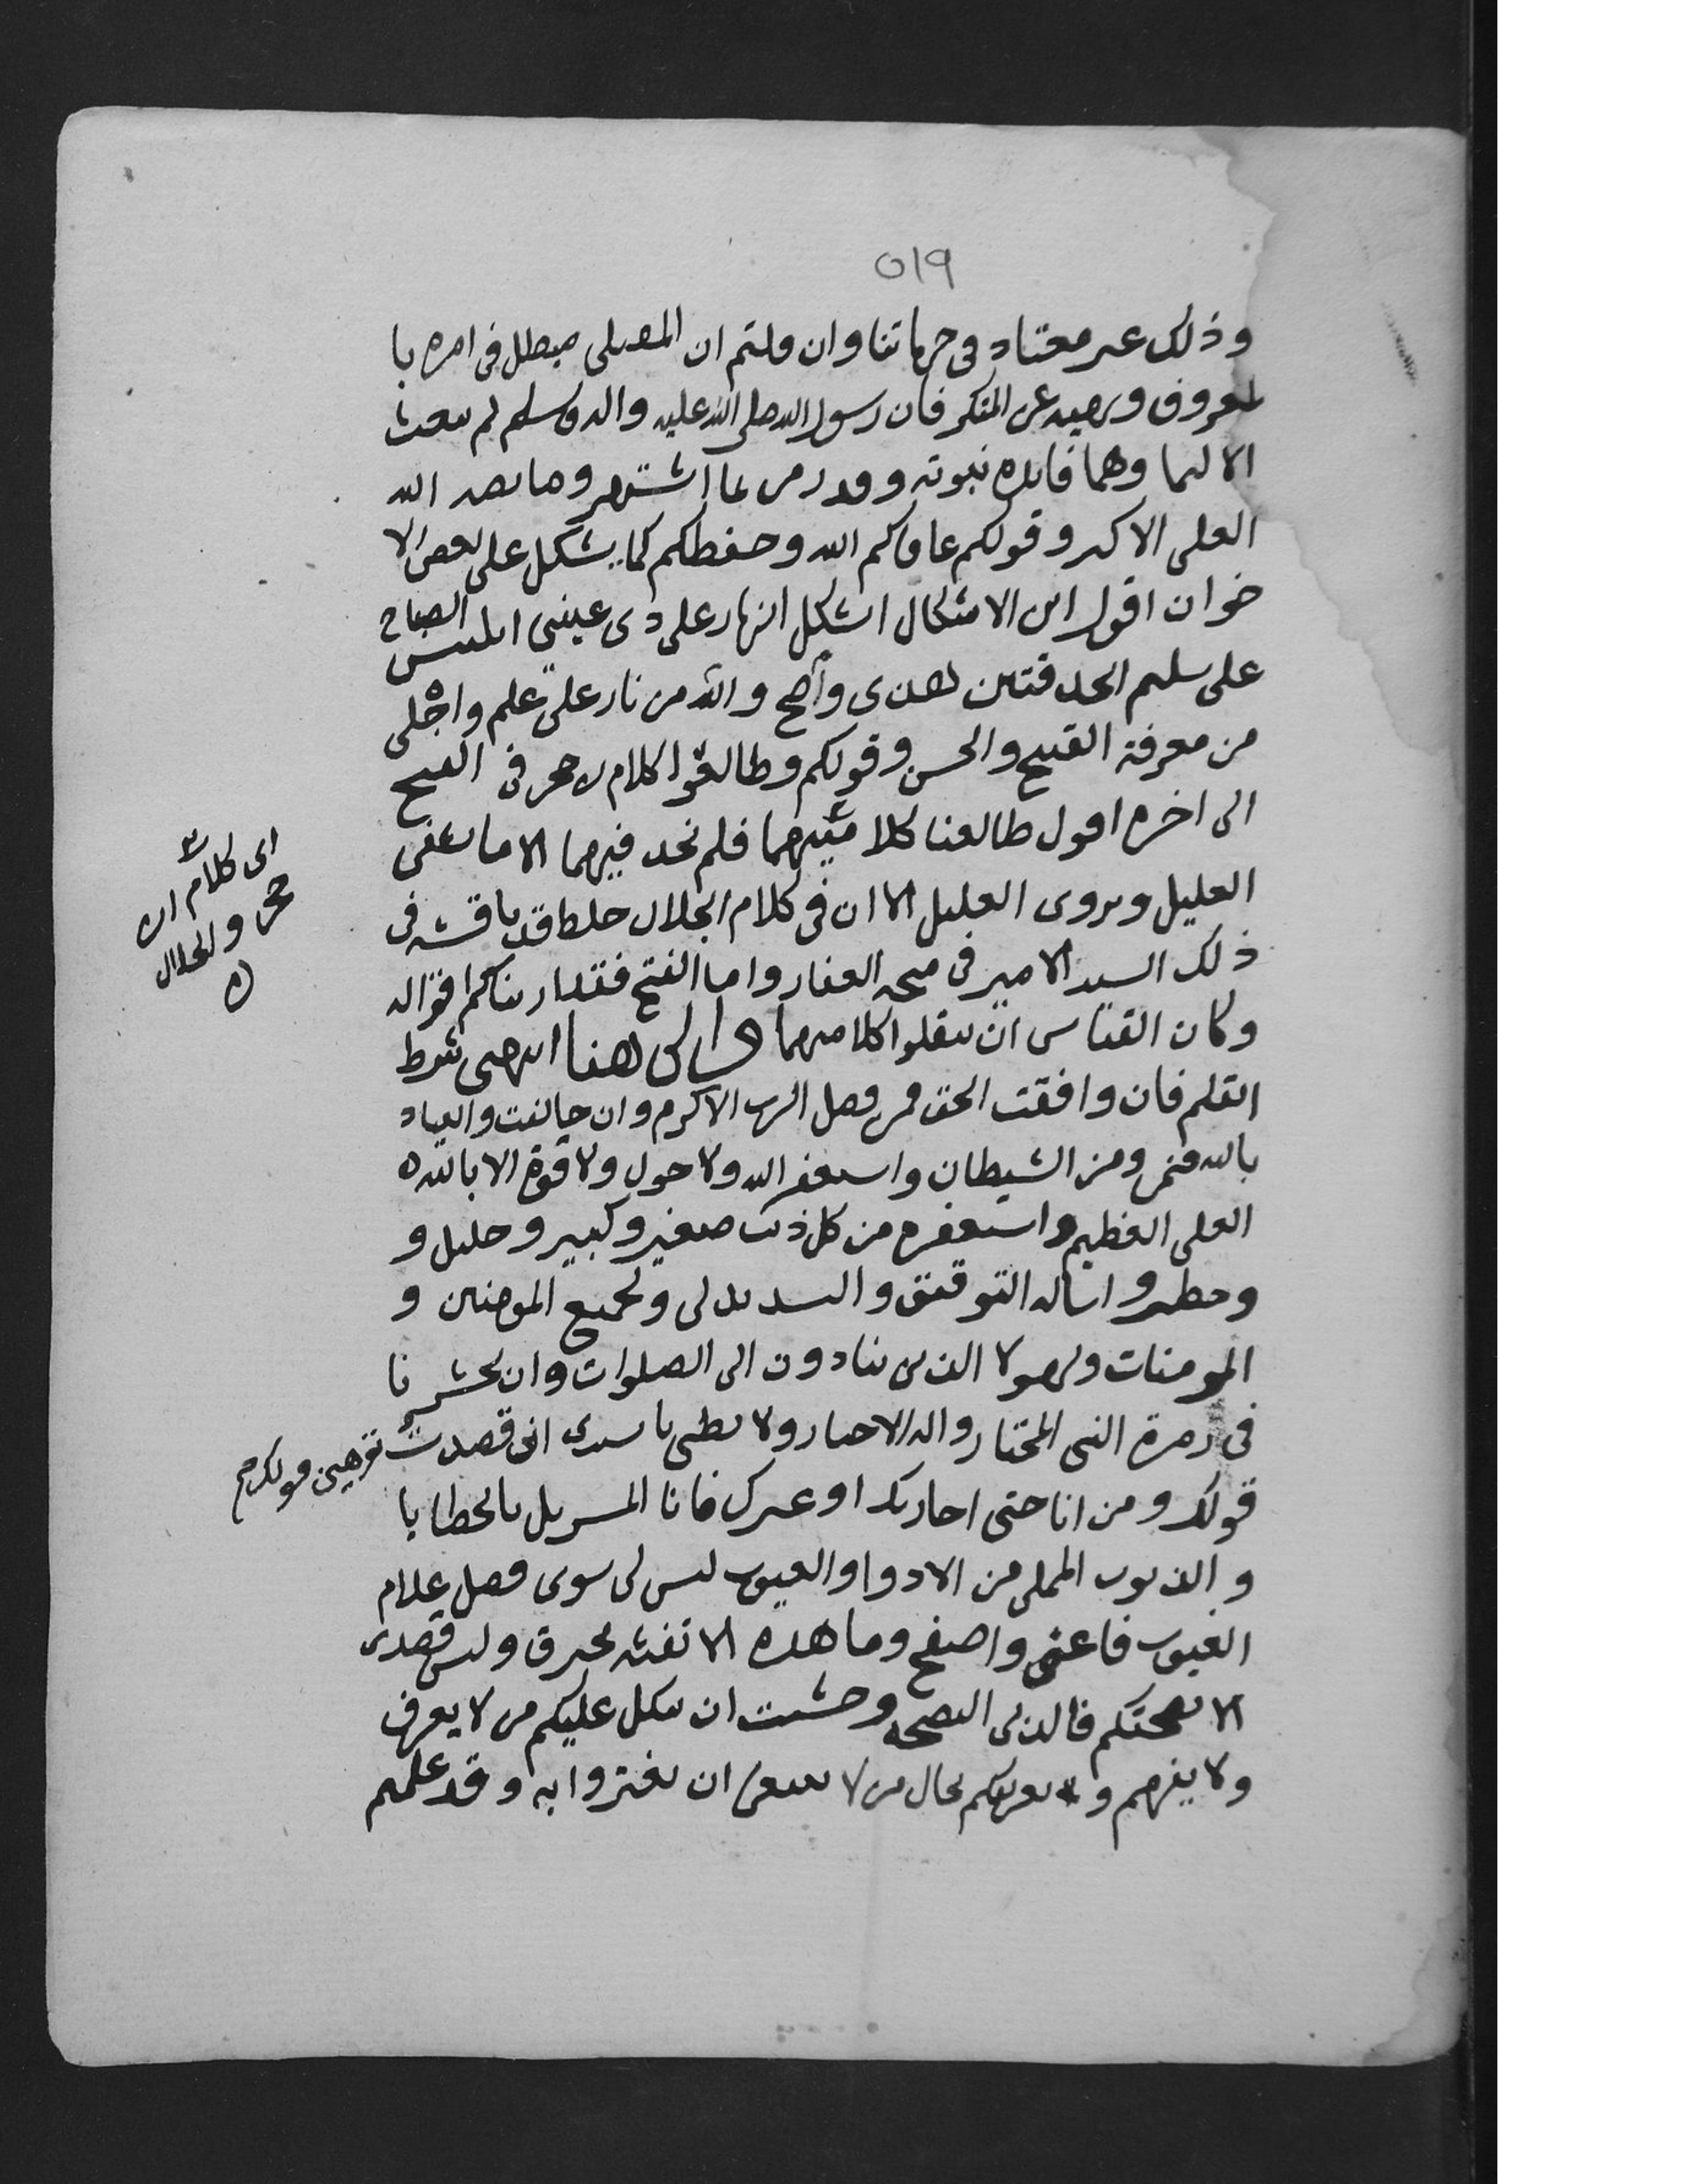 ٥١٩
وذلك غير معتاد في حرماتنا وان قلتم ان المصلي مبطل في امره با
لمعروف ونهيه عن المنكر فان رسول الله صلى الله عليه واله وسلم لم يبعث
الا لهما وهما فايدة نبوته وقد رمى بما اشتهر وما يصد الله
العلي الاكبر وقولكم عافاكم الله وحفظكم كما يشكل على بعض الا
خوان اقول اين الاشكال اشكل النهار على ذي عينين التبس الصباح
على سليم الحدقتين لهذي واضح والله من نار على علم واجلى
من معرفة القبيح والحسن وقولكم وطالعوا كلام بن حجر في الفتح
الى اخره اقول طالعنا كلاميهما فلم نجد فيهما الا ما يشفي
العليل ويروي الغليل الا ان في كلام الجلال خلطا قد ناقشه في
ذلك السيد الامير في منحة الغفار واما الفتح فقد اريناكم اقواله
وكان القياس ان تنقلوا كلاميهما الى هنا انتهى شوط
القلم فان وافقت الحق فمن فضل الرب الاكرم وان خالفت والعياذ
بالله فمني ومن الشيطان واستغفر الله ولا حول ولا قوة الا بالله
العلي العظيم واستغفره من كل ذنب صغير وكبير وجليل و
وحقير واساله التوفيق والتسديد لي ولجميع المومنين و
المومنات ولهولا الذين ينادون الى الصلوات وان يحشرنا
في زمرة النبي المختار واله الاخيار ولا تظن يا سيدي اني قصدت توهين قولكم
قولك ومن انا حتى اجاريك او غيرك فانا المسربل بالخطايا
والذنوب المملي من الادوا والعيوب ليس لي سوى فضل علام
الغيوب فاعف واصفح وما هذه الا نفثة محرق وليس قصدي
الا نصحتكم فالدين النصيحه وخشيت ان يتكل عليكم من لا يعرف
ولا يفهم وتعريفكم بحال من لا ينبغي ان تغتروا به وقد علمتم
اي كلام ابن
حجر والجلال